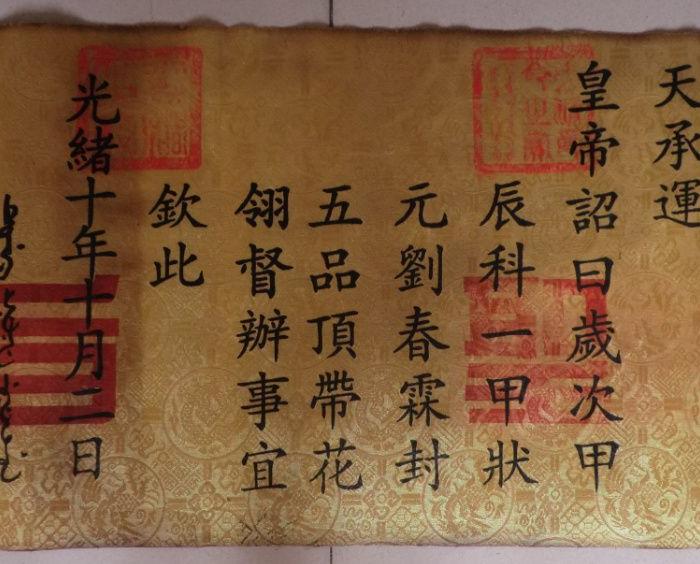 天承運
皇帝詔曰歲次甲
辰科一甲狀
元劉春霖封
五品頂帶花
翎督辦事宜
欽此
光緒十年十月二日